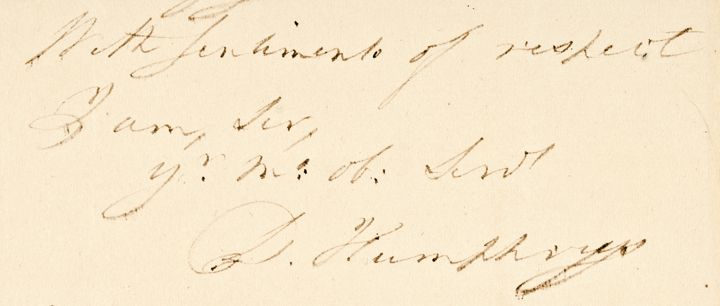 With sentiments of respect
I am, Sir,
yr. Mo: ob: Servt
D. Humphreys